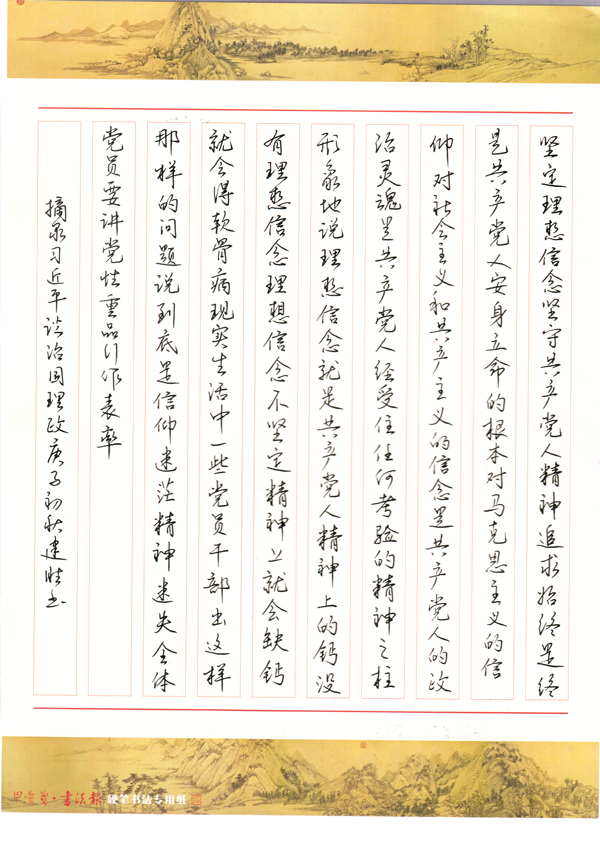 坚定理想信念坚守共产党人精神追求始终是终
是共产党人安身立命的根本对马克思主义的信
仰对社会主义和共产主义的信念是共产党人的政
治灵魂是共产党人经受住任何考验的精神之柱
形象地说理想信念就是共产党人精神上的钙没
有理想信念理想信念不坚定精神上就会缺钙
就会得软骨病现实生活中一些党员干部出这样
那样的问题说到底是信仰迷茫精神迷失全体
党员要讲党性重品行作表率
摘录习近平谈治国理政庚子初秋建胜书
书法报 硬笔书法专用纸